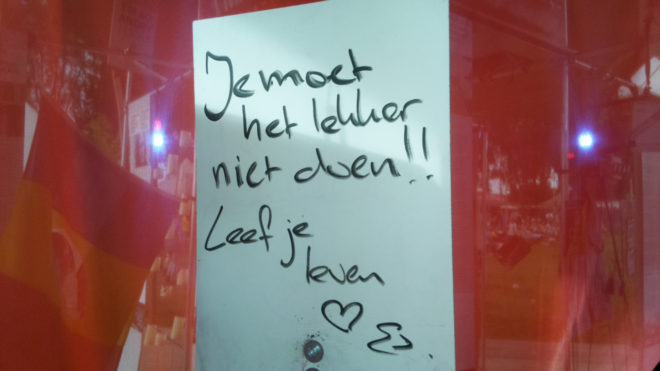 Je moet
het lekker
niet doen!!
Leef je
leven